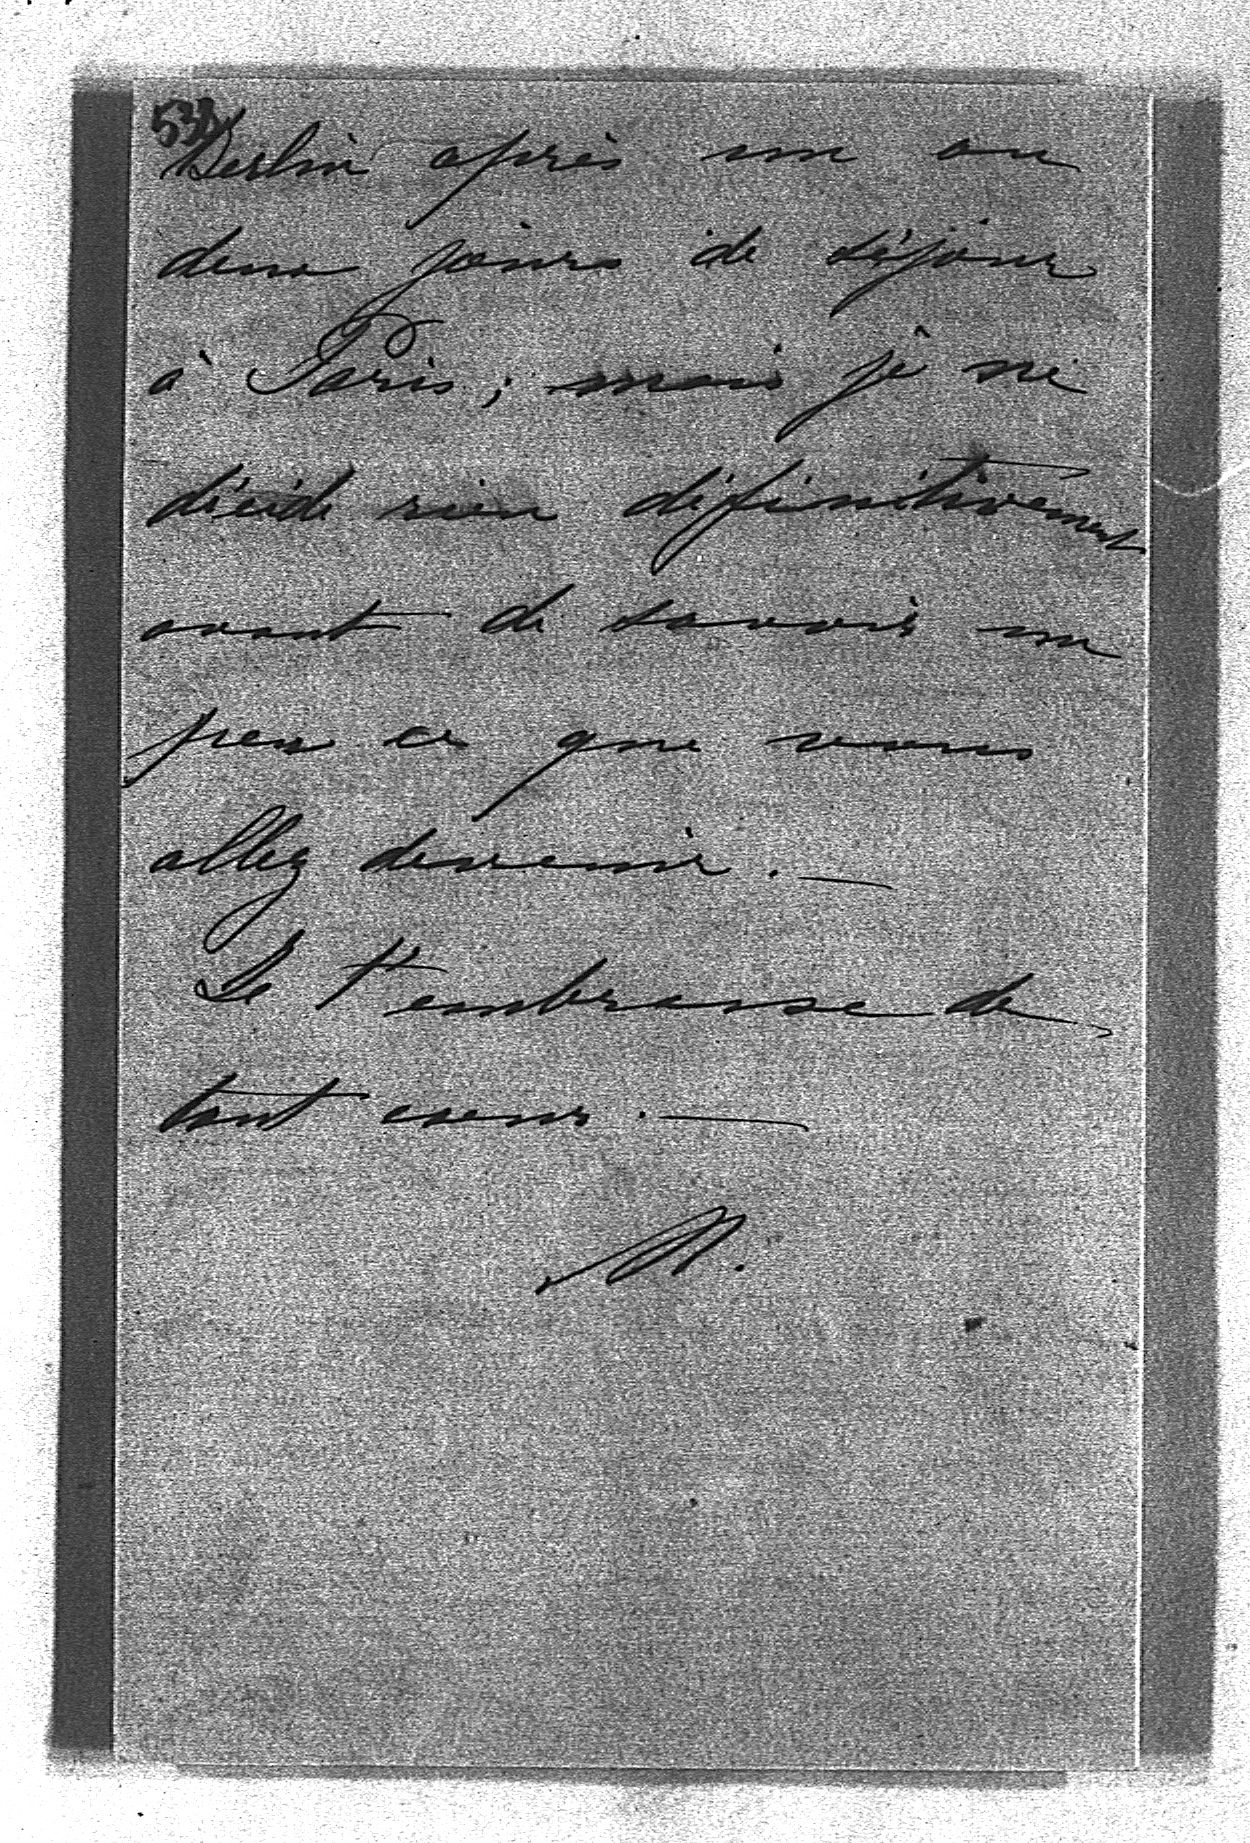 532
Berlin après un ou
deux jours de séjour
à Paris ; mais je ne
décide rien définitivement
avant de savoir un
peu ce que vous
allez devenir. —
Je t'embrasse de
tout coeur. —
N.